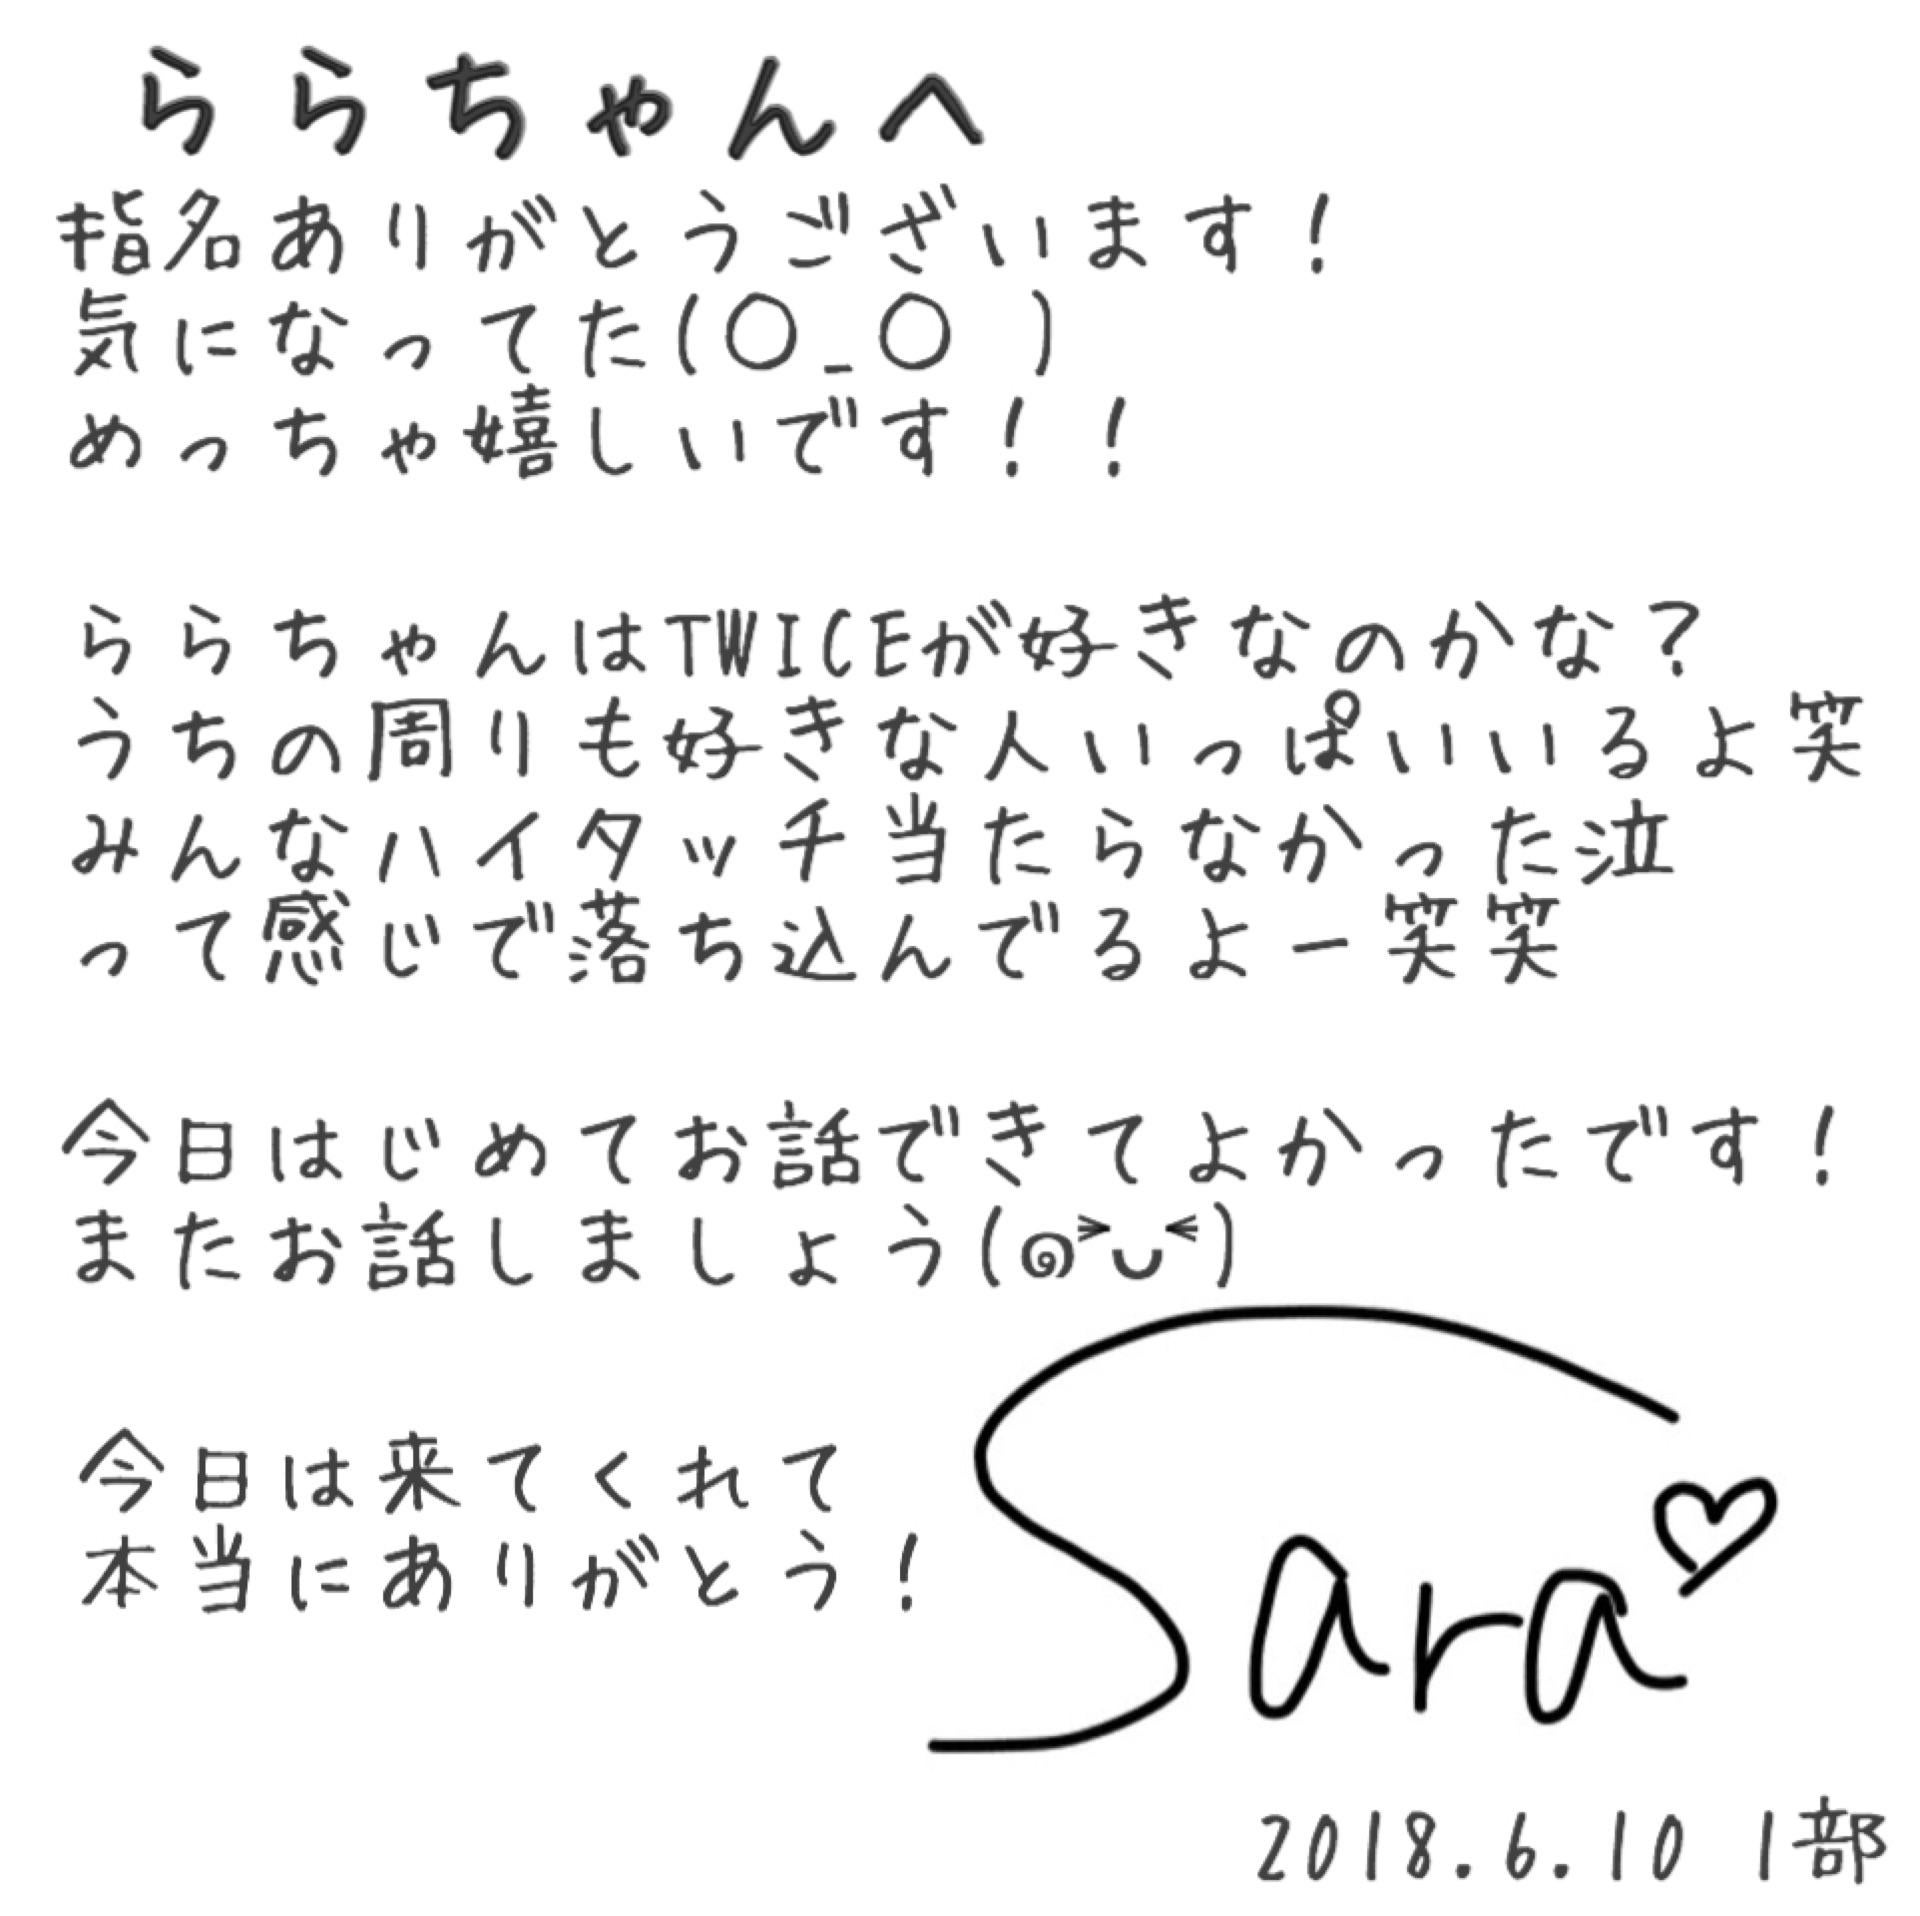 ららちゃんへ
指名ありがとうございます！
気になってた(〇_〇 )
めっちゃ嬉しいです！！
ららちゃんはTWICEが好きなのかな？
うちの周りも好きな人いっぱいいるよ笑
みんなハイタッチ当たらなかった泣
って感じで落ち込んでるよー笑笑
今日はじめてお話できてよかったです！
またお話しましょう(๑˃̵ᴗ˂̵)
今日は来てくれて
本当にありがとう！
Sara♡
2018.6.10 1部